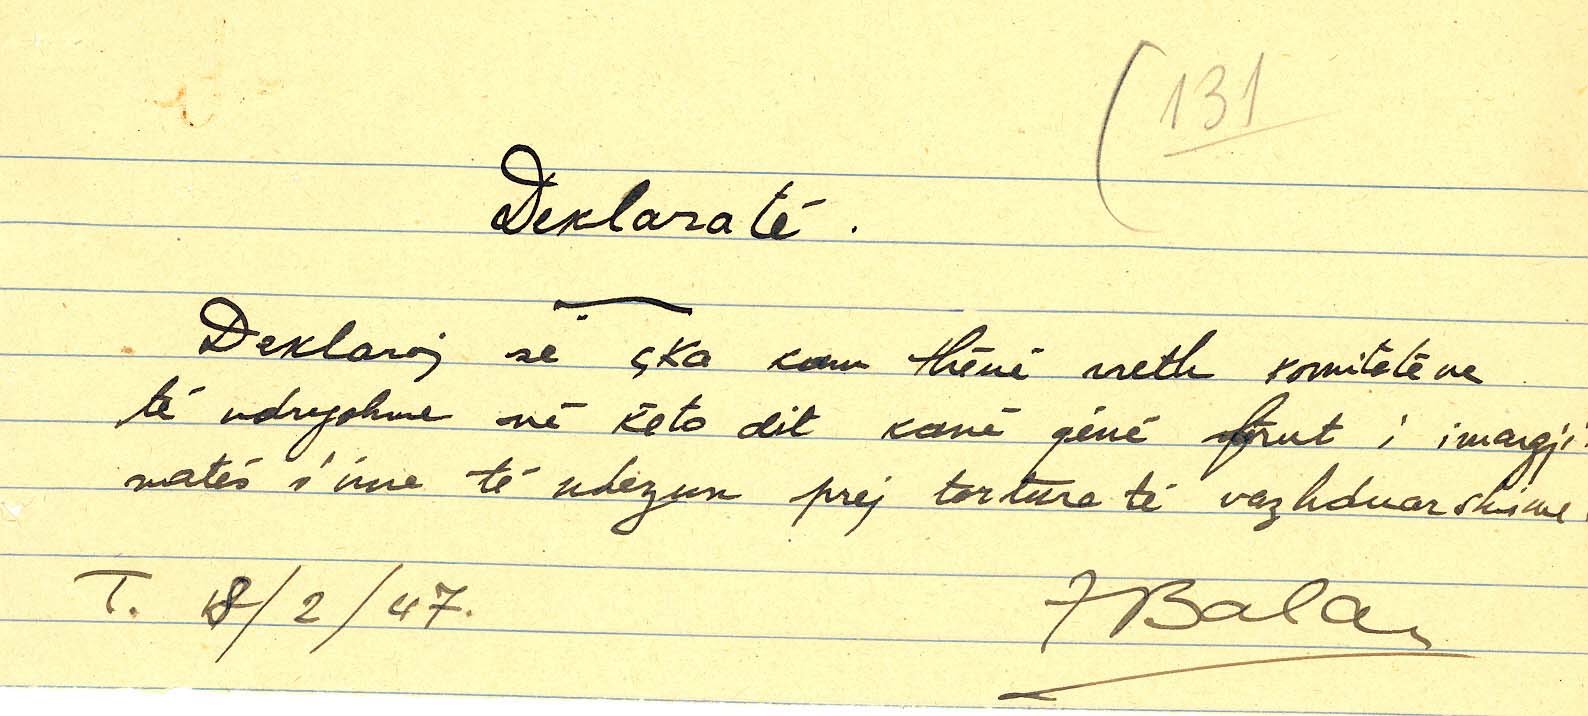 131
Deklaratë.
Deklaroj se çka kam thënë rreth komitetëve
të ndryshme në këto dit kanë qënë frut i imagji-
natës s'ime të ndezun prej torture të vazhduarshme.
T. 18/2/47. Bala